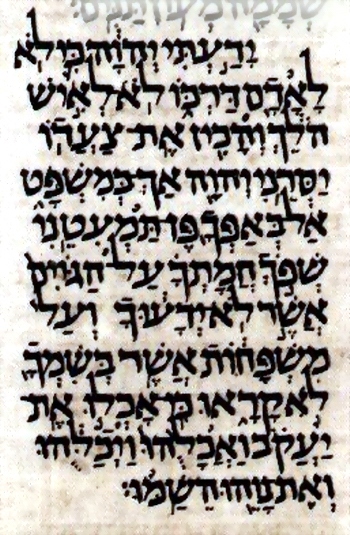 שְׁמָמָה מְעוֹן תַּנִּים׃
יָדַעְתִּי יְהוָה כִּי לֹא
לָאָדָם דַּרְכּוֹ לֹא לְאִישׁ
הֹלֵךְ וְהָכִין אֶת צַעֲדוֹ
יַסְּרֵנִי יְהוָה אַךְ בְּמִשְׁפָּט
אַל בְּאַפְּךָ פֶּן תַּמְעִטֵנִי
שְׁפֹךְ חֲמָתְךָ עַל הַגּוֹיִם
אֲשֶׁר לֹא יְדָעוּךָ וְעַל
מִשְׁפָּחוֹת אֲשֶׁר בְּשִׁמְךָ
לֹא קָרָאוּ כִּי אָכְלוּ אֶת
יַעֲקֹב וַאֲכָלֻהוּ וַיְכַלֻּהוּ
וְאֶת נָוֵהוּ הֵשַׁמּוּ׃